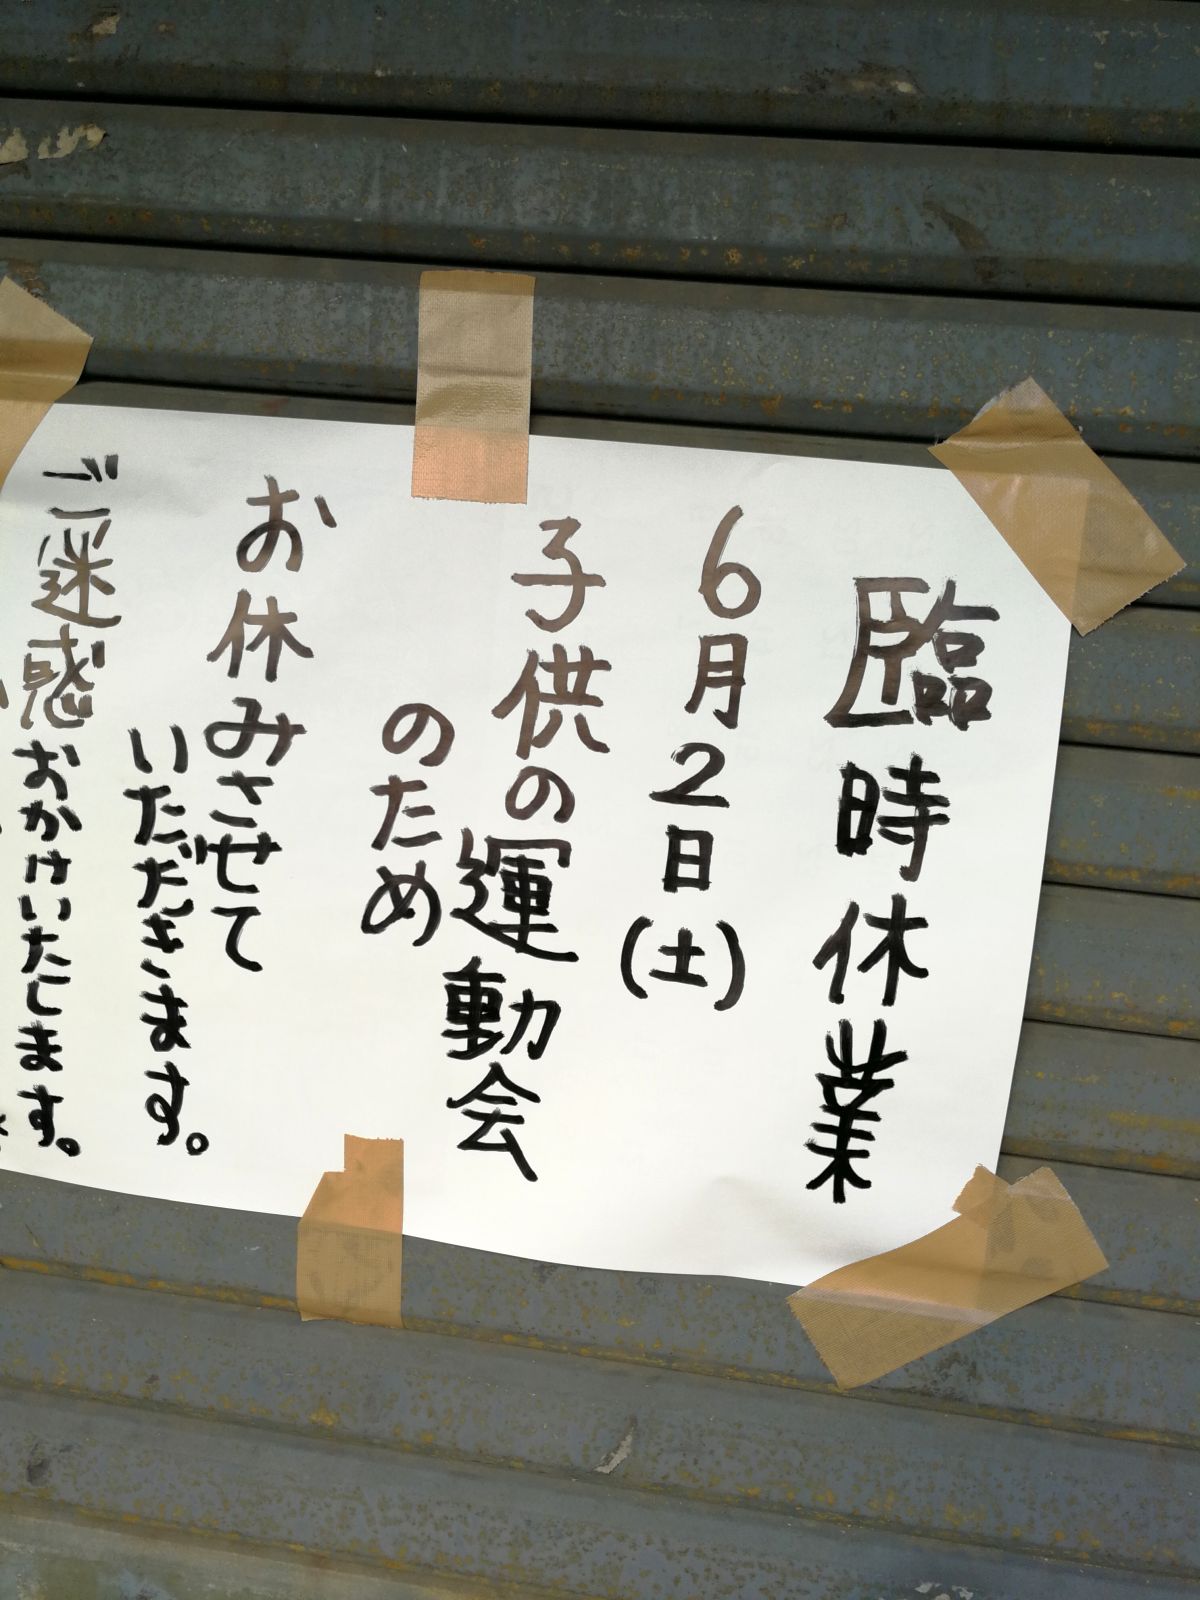 臨時休業
6月2日(土)
子供の運動会
のため
お休みさせて
いただきます。
ご迷惑おかけいたします。